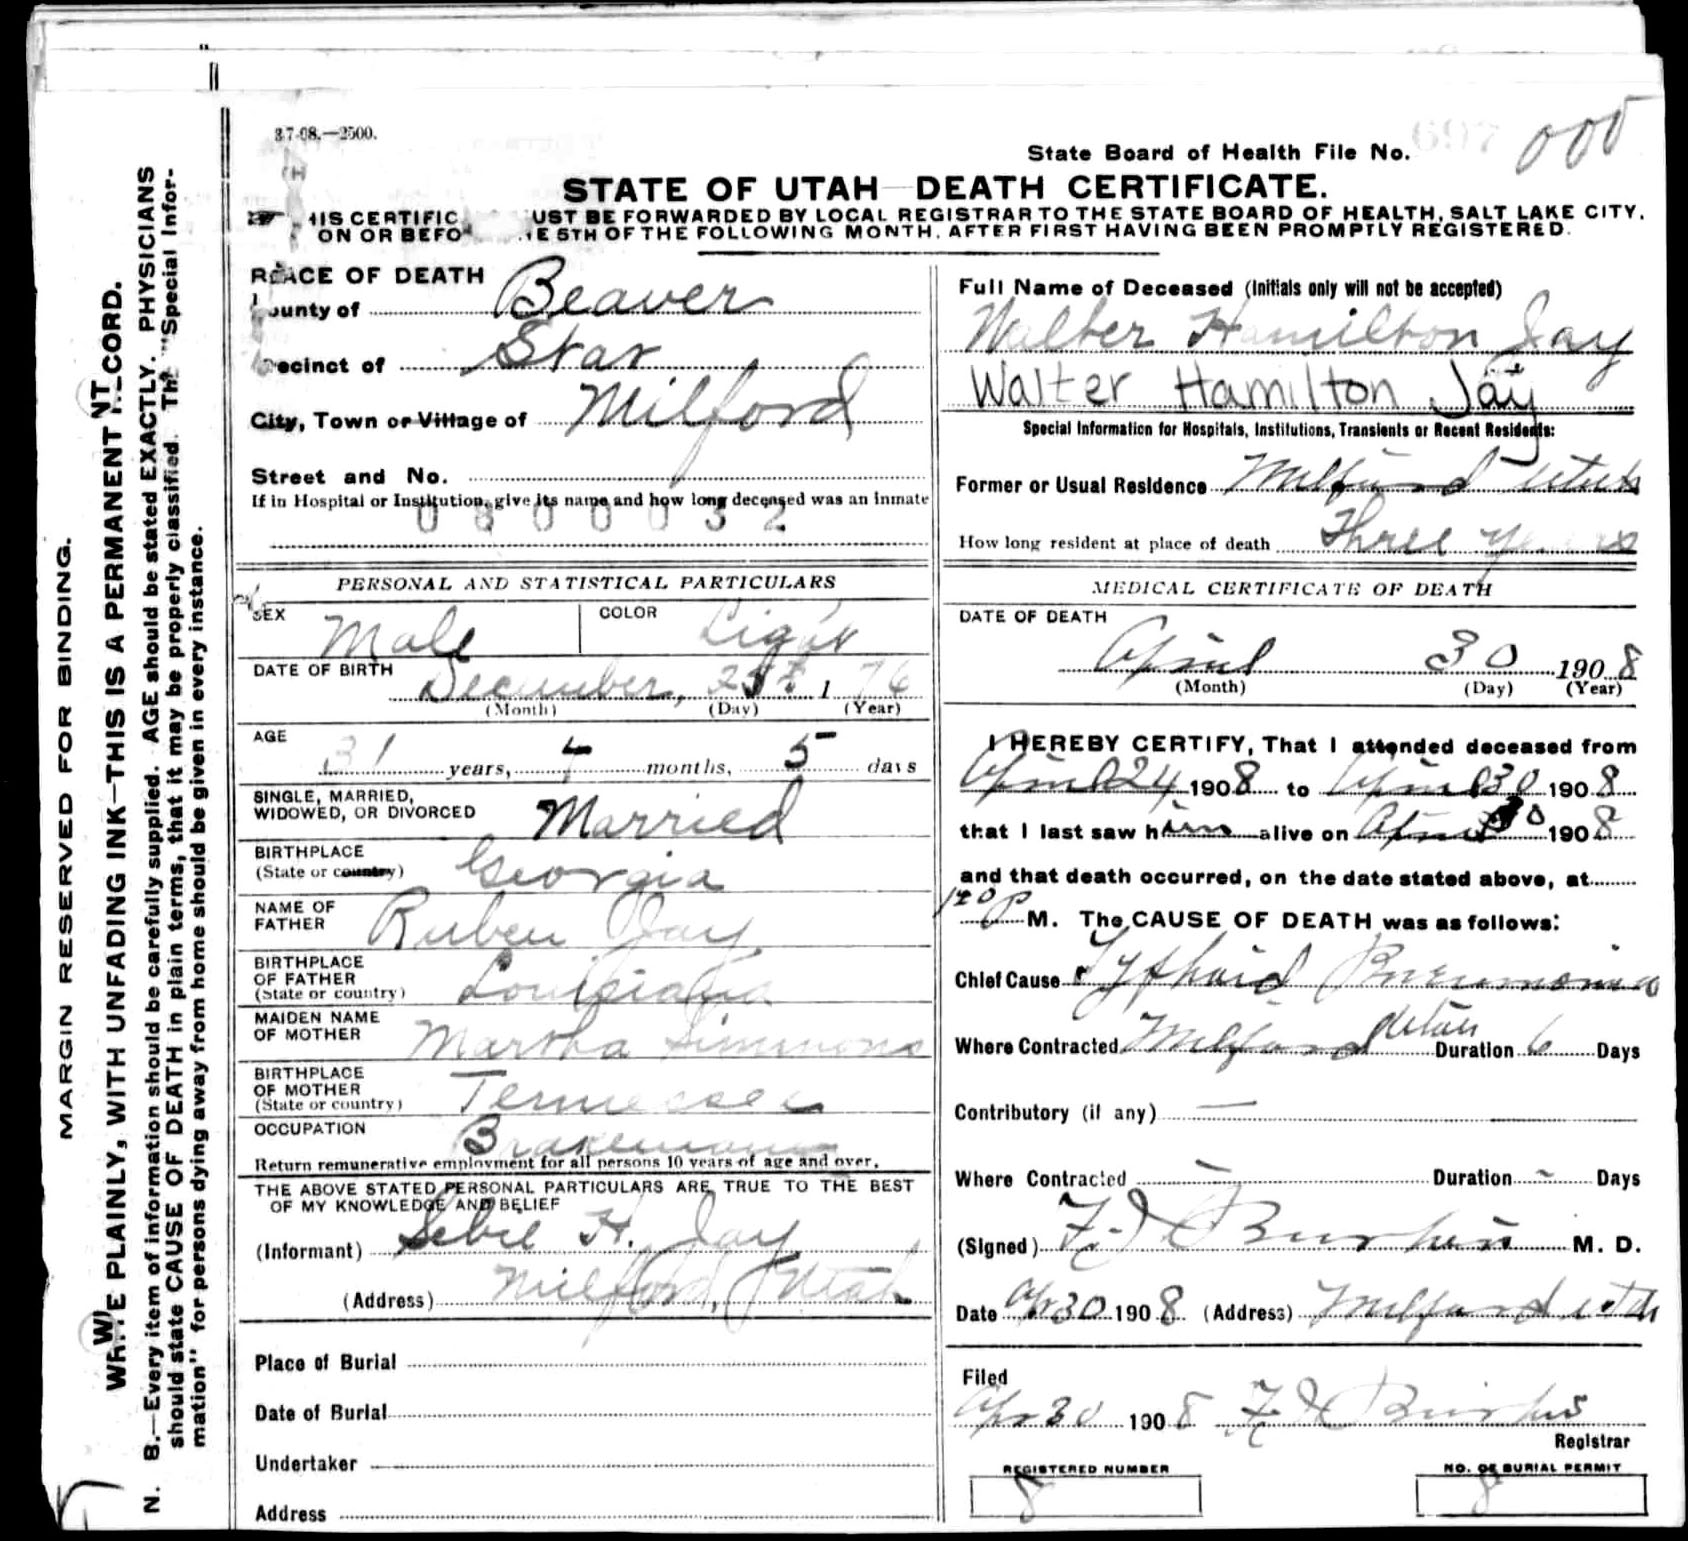 37-08.—2500.
State Board of Health File No. 697 000
STATE OF UTAH—DEATH CERTIFICATE.
HIS CERTIFIC UST BE FORWARDED BY LOCAL REGISTRAR TO THE STATE BOARD OF HEALTH, SALT LAKE CITY,
ON OR BEFO E 5TH OF THE FOLLOWING MONTH, AFTER FIRST HAVING BEEN PROMPTLY REGISTERED.
PLACE OF DEATH
County of Beaver
Precinct of Star
City, Town or Village of Milford
Street and No.
If in Hospital or Institution, give its name and how long deceased was an inmate
0800032
PERSONAL AND STATISTICAL PARTICULARS
SEX Male COLOR Light
DATE OF BIRTH December, 25 1 76
(Month) (Day) (Year)
AGE 31 years, 4 months, 5 days
SINGLE, MARRIED,
WIDOWED, OR DIVORCED Married
BIRTHPLACE
(State or country) Georgia
NAME OF
FATHER Ruben Jay
BIRTHPLACE
OF FATHER
(State or country) Louisiana
MAIDEN NAME
OF MOTHER Martha Simmons
BIRTHPLACE
OF MOTHER
(State or country) Tennessee
OCCUPATION Brakeman
Return remunerative employment for all persons 10 years of age and over.
THE ABOVE STATED PERSONAL PARTICULARS ARE TRUE TO THE BEST
OF MY KNOWLEDGE AND BELIEF
(Informant) H. Jay
(Address) Milford, Utah
Place of Burial
Date of Burial
Undertaker
Address
Full Name of Deceased (Initials only will not be accepted)
Walter Hamilton Jay
Walter Hamilton Jay
Special Information for Hospitals, Institutions, Transients or Recent Residents:
Former or Usual Residence Milford Utah
How long resident at place of death Three years
MEDICAL CERTIFICATE OF DEATH
DATE OF DEATH
April 30 1908
(Month) (Day) (Year)
I HEREBY CERTIFY, That I attended deceased from
April 24 1908 to April 30 1908
that I last saw him alive on April 30 1908
and that death occurred, on the date stated above, at
140 P M. The CAUSE OF DEATH was as follows:
Chief Cause Typhoid Pneumonia
Where Contracted Milford Utah Duration 6 Days
Contributory (if any) —
Where Contracted — Duration - Days
(Signed) M. D.
Date Apr 30 1908 (Address) Milford Utah
Filed
Apr 30 1908
Registrar
REGISTERED NUMBER
8
NO. OF BURIAL PERMIT
8
MARGIN RESERVED FOR BINDING.
WRITE PLAINLY, WITH UNFADING INK—THIS IS A PERMANENT RECORD.
N. B.—Every item of information should be carefully supplied. AGE should be stated EXACTLY. PHYSICIANS
should state CAUSE OF DEATH in plain terms, that it may be properly classified. The "Special Infor-
mation" for persons dying away from home should be given in every instance.